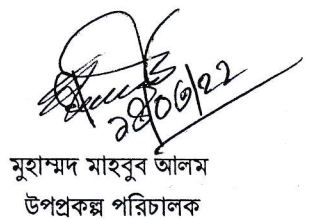 ২৪/০৩/২২
মুহাম্মদ মাহবুব আলম
উপপ্রকল্প পরিচালক